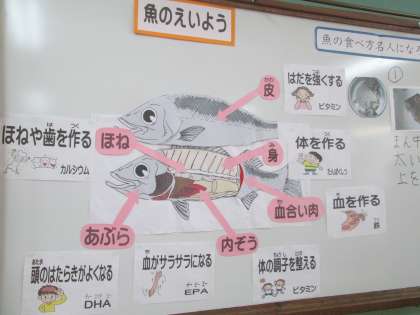 魚のえいよう
魚の食べ方名人にな
かわ
皮
はだを強くする
ビタミン
ほねや歯を作る
カルシウム
ほね
身
体を作る
たんぱくしつ
血合い肉
血を作る
鉄
あぶら
内ぞう
頭のはたらきがよくなる
DHA
血がサラサラになる
EPA
体の調子を整える
ビタミン
①